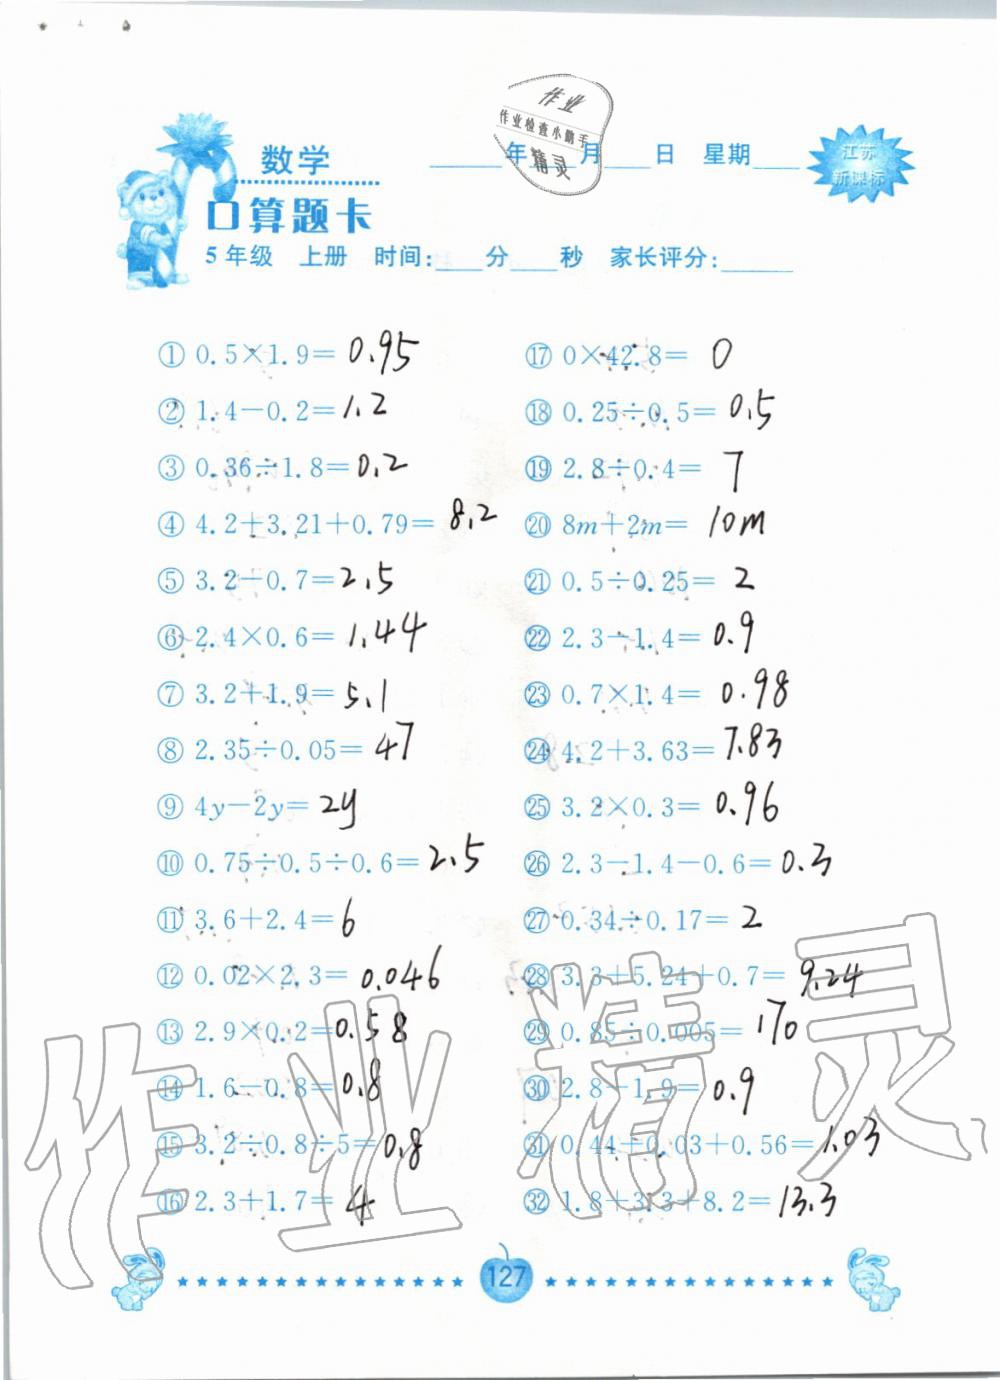 作业
作业检查小助手
精灵
数学
年 月 日 星期
江苏
新课标
口算题卡
5年级 上册 时间: 分 秒 家长评分:
① 0.5×1.9= 0.95
② 1.4-0.2= 1.2
③ 0.36÷1.8= 0.2
④ 4.2+3.21+0.79= 8.2
⑤ 3.2-0.7= 2.5
⑥ 2.4×0.6= 1.44
⑦ 3.2+1.9= 5.1
⑧ 2.35÷0.05= 47
⑨ 4y-2y= 2y
⑩ 0.75÷0.5÷0.6= 2.5
⑪ 3.6+2.4= 6
⑫ 0.02×2.3= 0.046
⑬ 2.9×0.2= 0.58
⑭ 1.6-0.8= 0.8
⑮ 3.2÷0.8÷5= 0.8
⑯ 2.3+1.7= 4
⑰ 0×42.8= 0
⑱ 0.25÷0.5= 0.5
⑲ 2.8÷0.4= 7
⑳ 8m+2m= 10m
㉑ 0.5÷0.25= 2
㉒ 2.3-1.4= 0.9
㉓ 0.7×1.4= 0.98
㉔ 4.2+3.63= 7.83
㉕ 3.2×0.3= 0.96
㉖ 2.3-1.4-0.6= 0.3
㉗ 0.34÷0.17= 2
㉘ 3.3+5.24+0.7= 9.24
㉙ 0.85÷0.005= 170
㉚ 2.8-1.9= 0.9
㉛ 0.44+0.03+0.56= 1.03
㉜ 1.8+3.3+8.2= 13.3
作业精灵
127